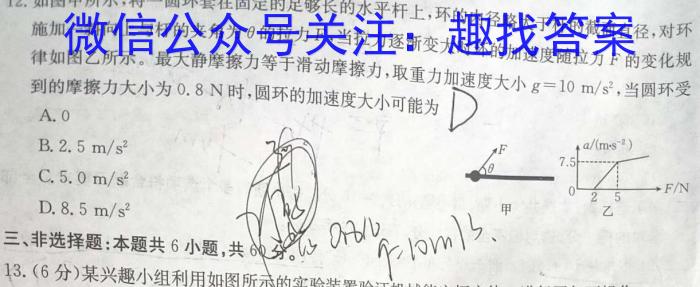 12.如图甲所示,将一圆环套在固定的足够长的水平杆上,环的
微信公众号关注:趣找答案
施加 的拉力 当拉力逐渐变大 的加速度随拉力F的变化规
律如图乙所示。最大静摩擦力等于滑动摩擦力,取重力加速度大小g=10 m/s²,当圆环受
到的摩擦力大小为0.8 N时,圆环的加速度大小可能为 D
A.0
B.2.5 m/s²
C.5.0 m/s²
D.8.5 m/s²
F
θ
甲
a/(m·s⁻²)
7.5
0 2 5 F/N
乙
三、非选择题:本题共6小题,共6 分。
g=10m/s
13.(6分)某兴趣小组利用如图所示的实验装置验证机械能